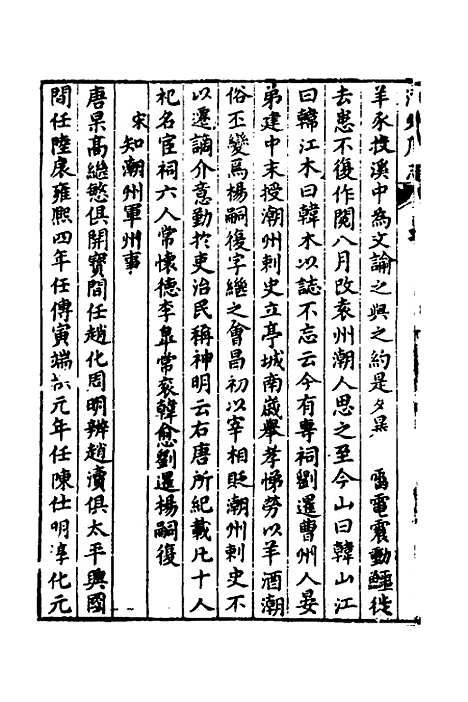 羊豕投溪中為文論之與之約是夕暴　雷電震動鱷徙
去患不復作閱八月改袁州潮人思之至今山曰韓山江
曰韓江木曰韓木以誌不忘云今有專祠劉暹曹州人晏
弟建中末授潮州刺史立亭城南歲舉孝悌勞以羊酒潮
俗丕變焉楊嗣復字繼之會昌初以宰相貶潮州刺史不
以遷謫介意勤於吏治民稱神明云右唐所紀載凡十人
祀名宦祠六人常懷德李臯常袞韓愈劉暹楊嗣復
宋知潮州軍州事
唐杲高繼慜俱開寶間任趙化周明辨趙瀆俱太平興國
間任陸展雍熙四年任傅寅端拱元年任陳仕明淳化元